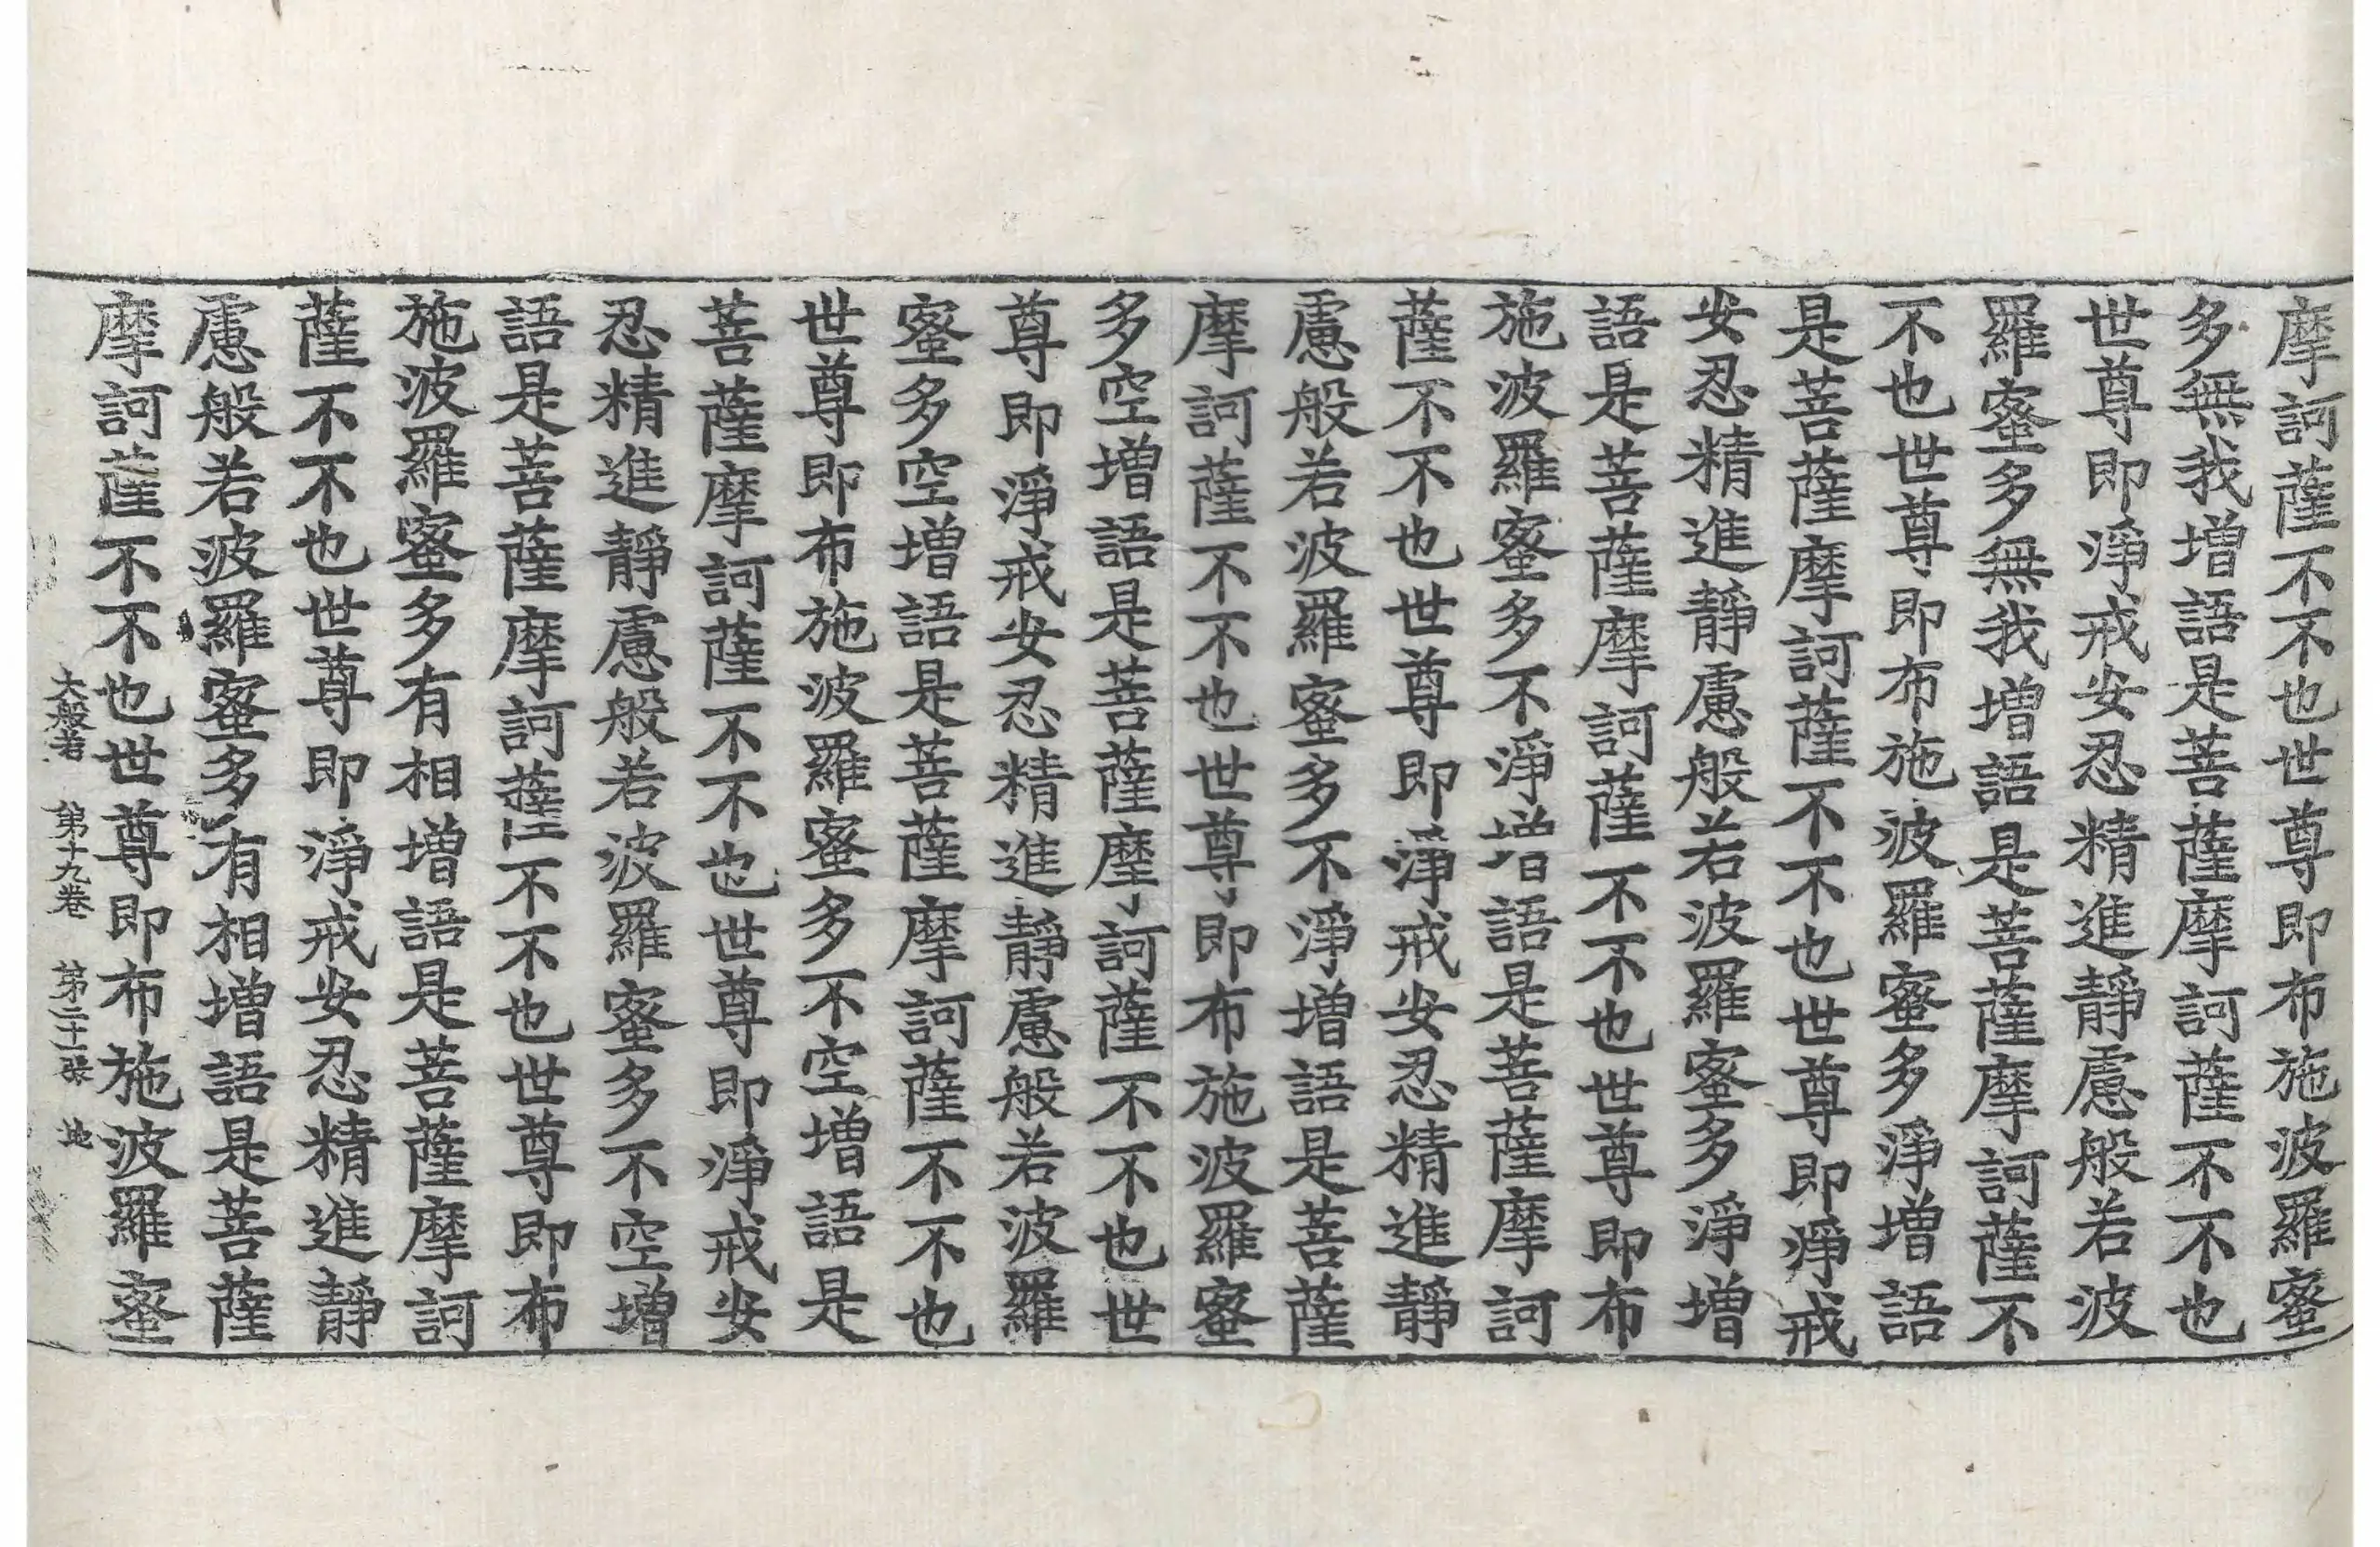 摩訶薩不不也世尊即布施波羅蜜
多無我增語是菩薩摩訶薩不不也
世尊即淨戒安忍精進靜慮般若波
羅蜜多無我增語是菩薩摩訶薩不
不也世尊即布施波羅蜜多淨增語
是菩薩摩訶薩不不也世尊即淨戒
安忍精進靜慮般若波羅蜜多淨增
語是菩薩摩訶薩不不也世尊即布
施波羅蜜多不淨增語是菩薩摩訶
薩不不也世尊即淨戒安忍精進靜
慮般若波羅蜜多不淨增語是菩薩
摩訶薩不不也世尊即布施波羅蜜
多空增語是菩薩摩訶薩不不也世
尊即淨戒安忍精進靜慮般若波羅
蜜多空增語是菩薩摩訶薩不不也
世尊即布施波羅蜜多不空增語是
菩薩摩訶薩不不也世尊即淨戒安
忍精進靜慮般若波羅蜜多不空增
語是菩薩摩訶薩不不也世尊即布
施波羅蜜多有相增語是菩薩摩訶
薩不不也世尊即淨戒安忍精進靜
慮般若波羅蜜多有相增語是菩薩
摩訶薩不不也世尊即布施波羅蜜
大般若 第十九卷 第二十一張 地